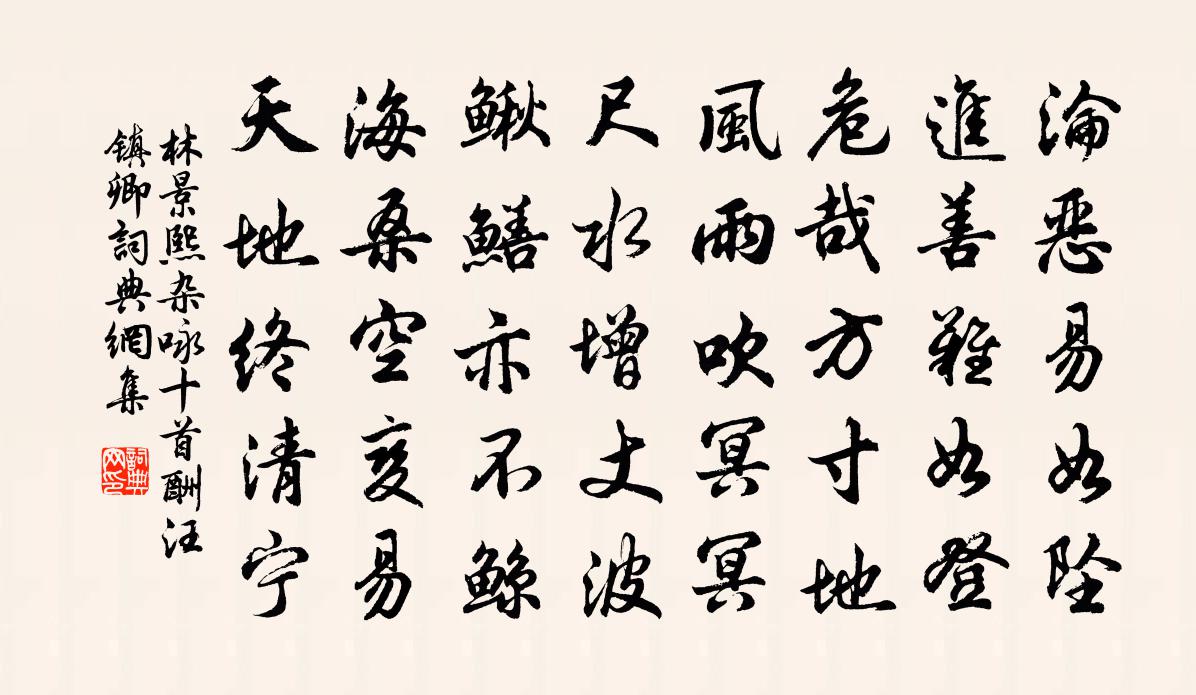 淪惡易如坠
進善難如登
危哉方寸地
風雨吹冥冥
尺水增丈波
鳅鳝亦不鲸
海桑空变易
天地终清宁
林景熙杂咏十首酬汪
镇卿詞典網集
詞典
网印